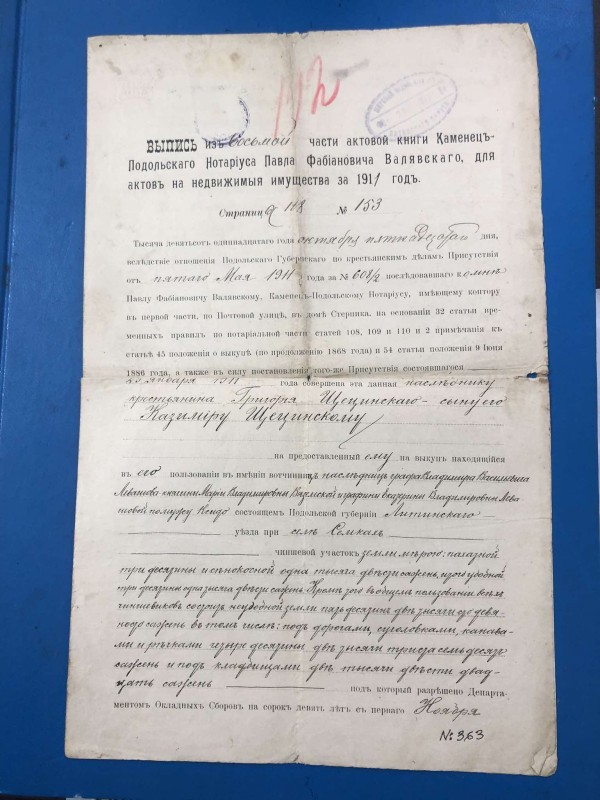 112
ВЫПИСЬ изъ восьмой части актовой книги Каменецъ-
Подольскаго Нотаріуса Павла Фабіановича Валявскаго, для
актовъ на недвижимыя имущества за 1911 годъ.
Страница 118 № 153
Тысяча девятьсотъ одиннадцатаго года октября пятнадцатаго дня,
вслѣдствіе отношенія Подольскаго Губернскаго по крестьянскимъ дѣламъ Присутствія
отъ пятаго Мая 1911 года за № 608/2 послѣдовавшаго ко мнѣ
Павлу Фабіановичу Валявскому, Каменецъ-Подольскому Нотаріусу, имѣющему контору
въ первой части, по Почтовой улицѣ, въ домѣ Стерника, на основаніи 32 статьи вре-
менныхъ правилъ по нотаріальной части статей 108, 109 и 110 и 2 примѣчанія къ
статьѣ 45 положенія о выкупѣ (по продолженію 1868 года) и 54 статьи положенія 9 Іюня
1886 года, а также въ силу постановленія того-же Присутствія состоявшагося
января 1911 года совершена эта данная наслѣднику
крестьянина Григорія Щецинскаго - сыну его
Казиміру Щецинскому
на предоставленный ему на выкупъ находящійся
въ его пользованіи въ имѣніи вотчинницъ наслѣдницъ графа Владиміра Васильевича
Левашова княгини Маріи Владиміровны Вяземской и графини Екатерины Владиміровны Лева
шовой по мужу состоящемъ Подольской губерніи Литинскаго
уѣзда при селѣ Сомкахъ
чиншевой участокъ земли мѣрою: пахатной
три десятины и сѣнокосной одна тысяча двѣсти сажень, и того удобной
три десятины одна тысяча двѣсти сажень. Кромѣ того въ общемъ пользованіи всѣхъ
чиншевиковъ состоитъ неудобной земли пять десятинъ двѣ тысячи сто девя-
носто сажень въ томъ числѣ: подъ дорогами, суголовками, канава-
ми и рѣчками четыре десятины двѣ тысячи триста семьдесятъ
сажень и подъ кладбищами двѣ тысячи двѣсти двад-
цать сажень подъ который разрѣшено Департа-
ментомъ Окладныхъ Сборовъ на сорокъ девять лѣтъ съ перваго Ноября
№ 3,63